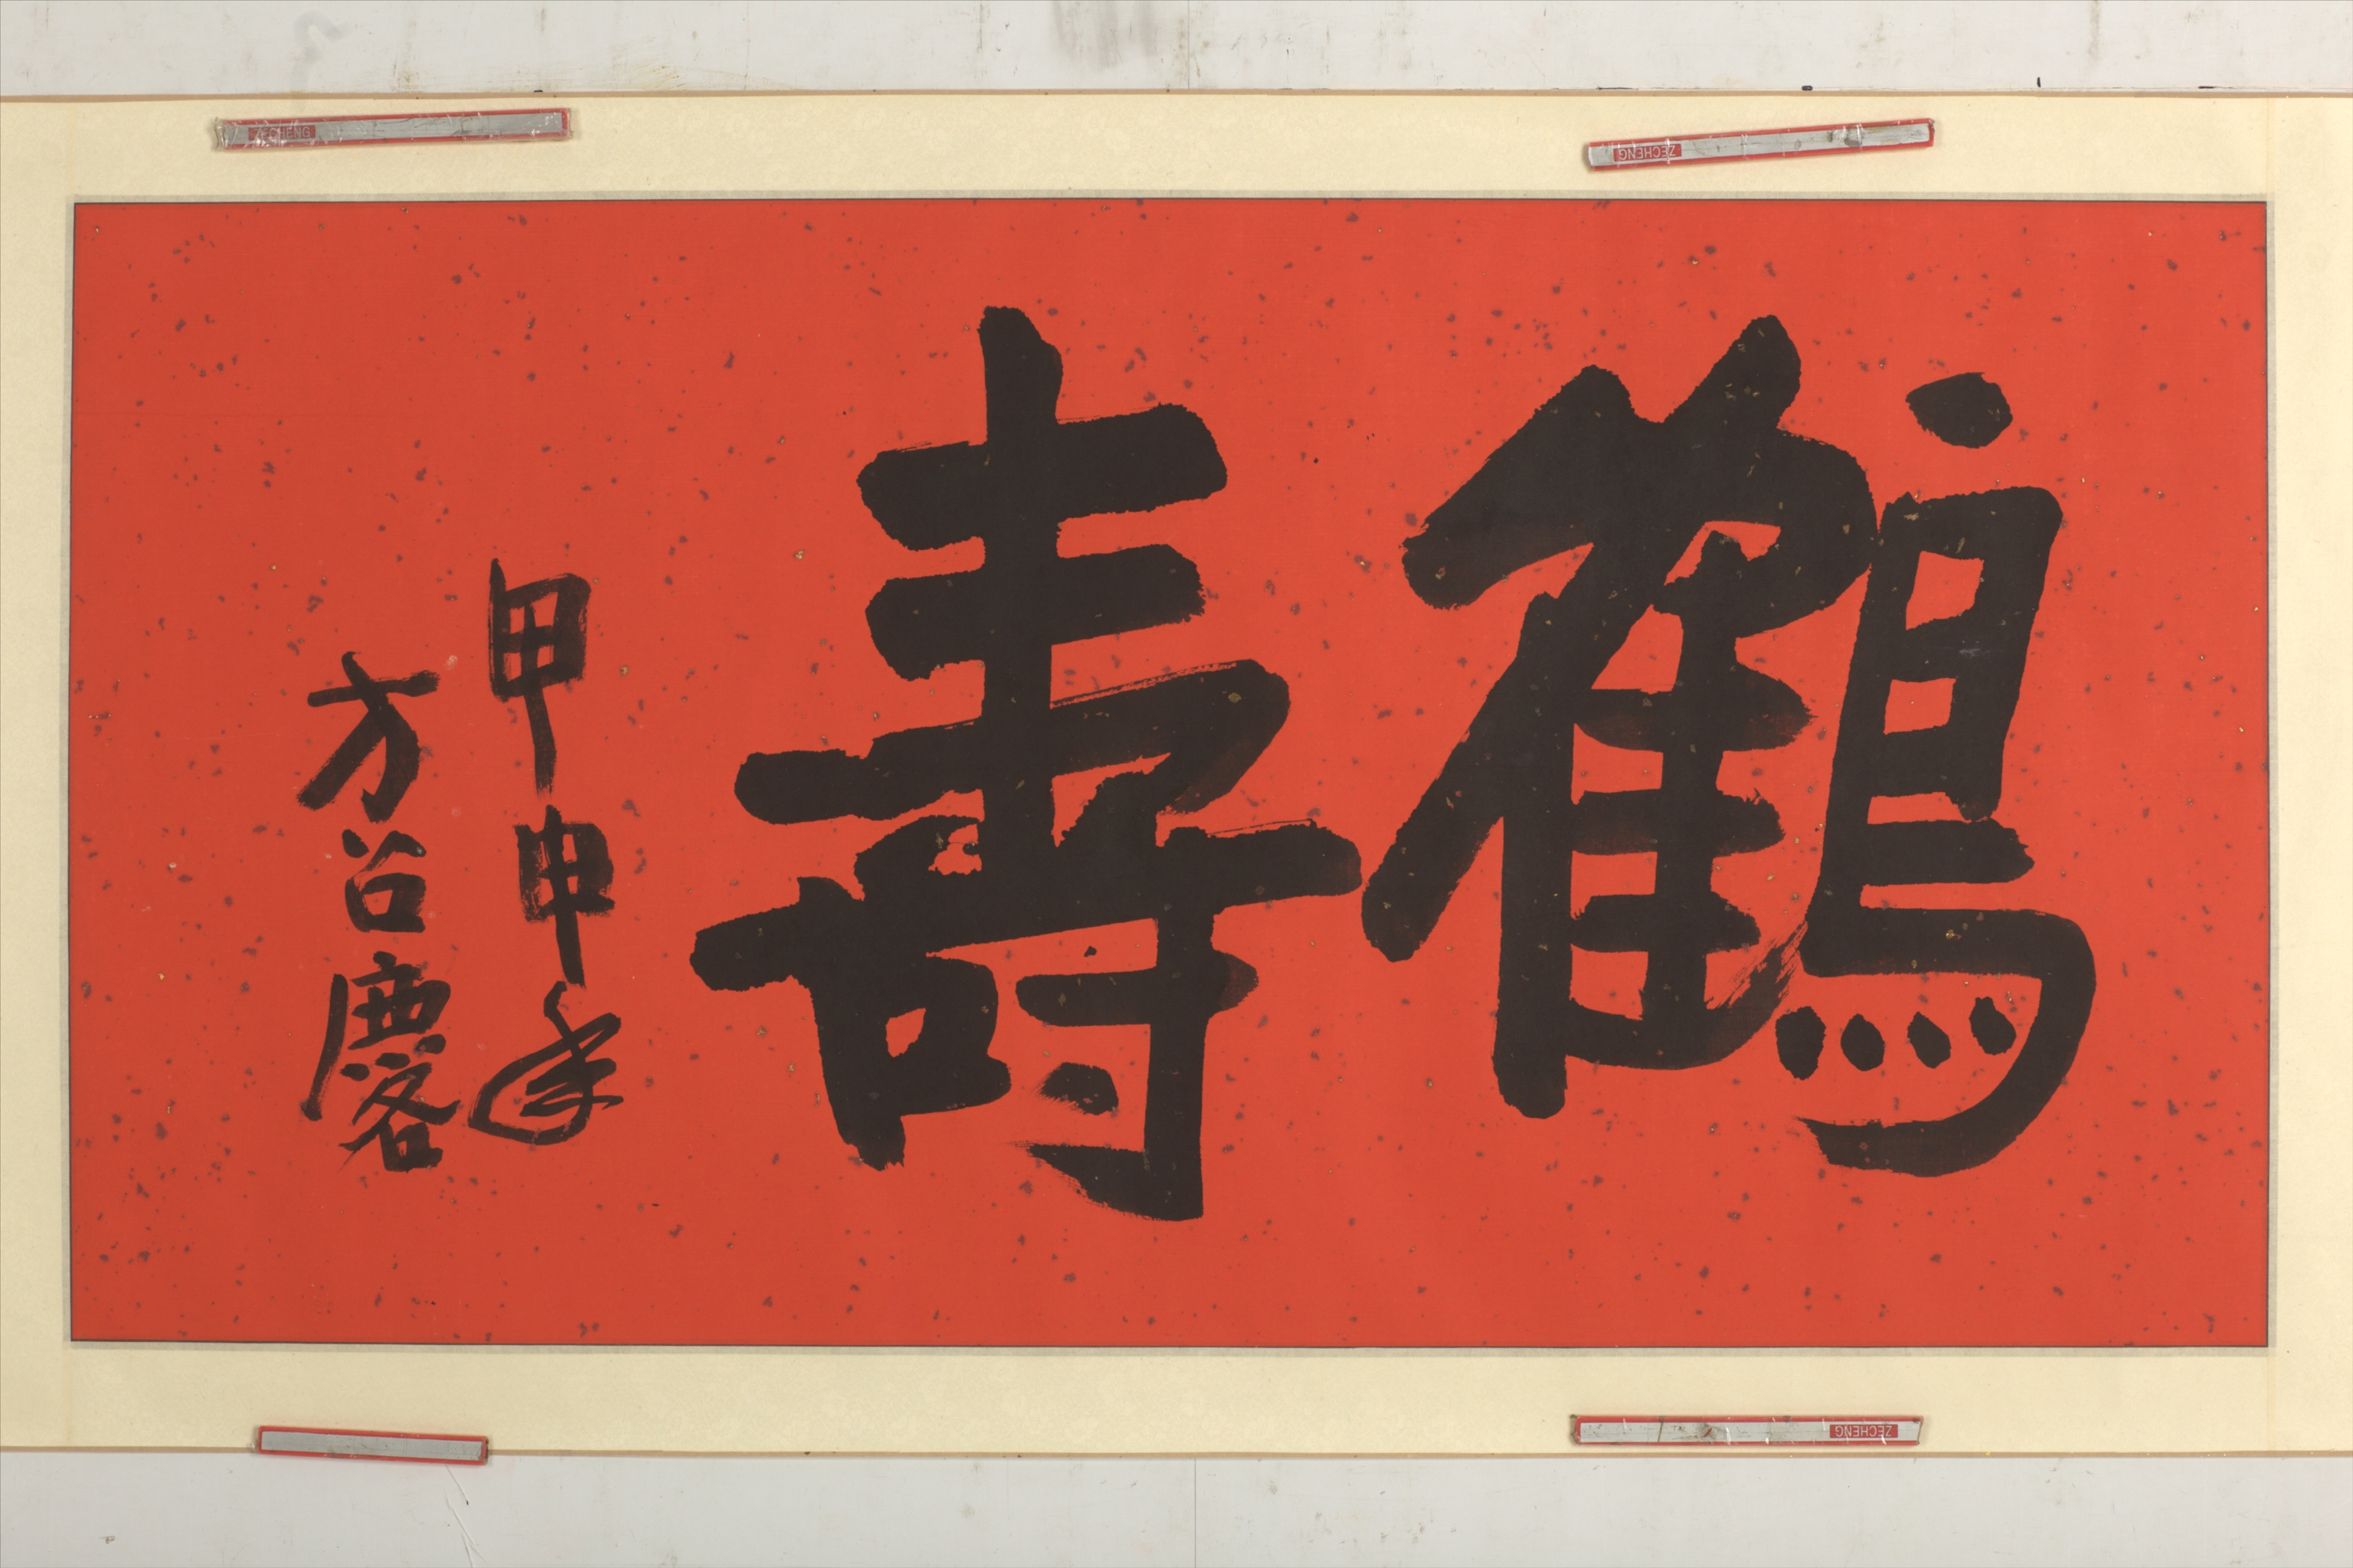 鶴壽
甲申年
方召麐
ZECHENG
ZECHENG
ZECHENG